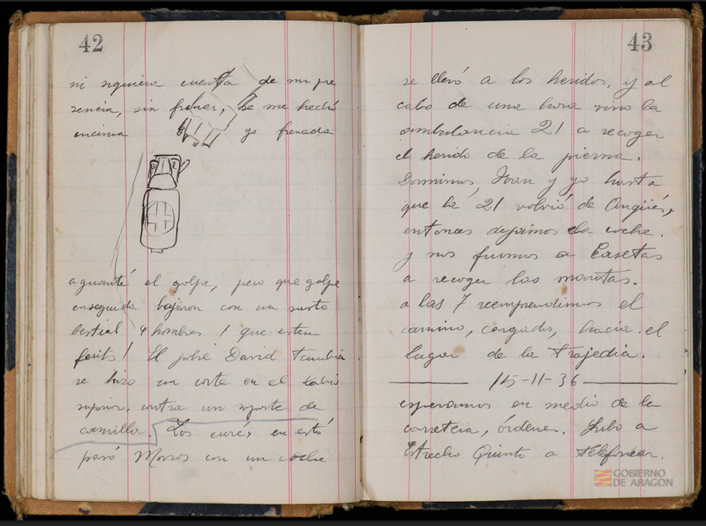 42
ni siquiera cuenta de mi pre
sencia, sin frenar, se me hechó
encima yo frenada
aguanté el golpe, pero que golpe
enseguida bajaron con un susto
bestial 4 hombres ! que estem
ferits ! El pobre David tambien
se hizo un corte en el labio
superior, contra un soporte de
camilla. Los curé, en esto
pasó Morros con un coche
43
se llevó a los heridos, y al
cabo de una hora vino la
ambulancia 21 a recoger
el herido de la pierna.
Dormimos, Joan y yo hasta
que la 21 volvió de Angüés,
entonces dejamos el coche.
y nos fuimos a Casetas
a recoger las mantas.
a las 7 reemprendimos el
camino, cargados, hacia el
lugar de la trajedia.
15-11-36
esperamos en medio de la
carretera, órdenes. Subo a
Estrecho Quinto a telefonear.
GOBIERNO
DE ARAGON